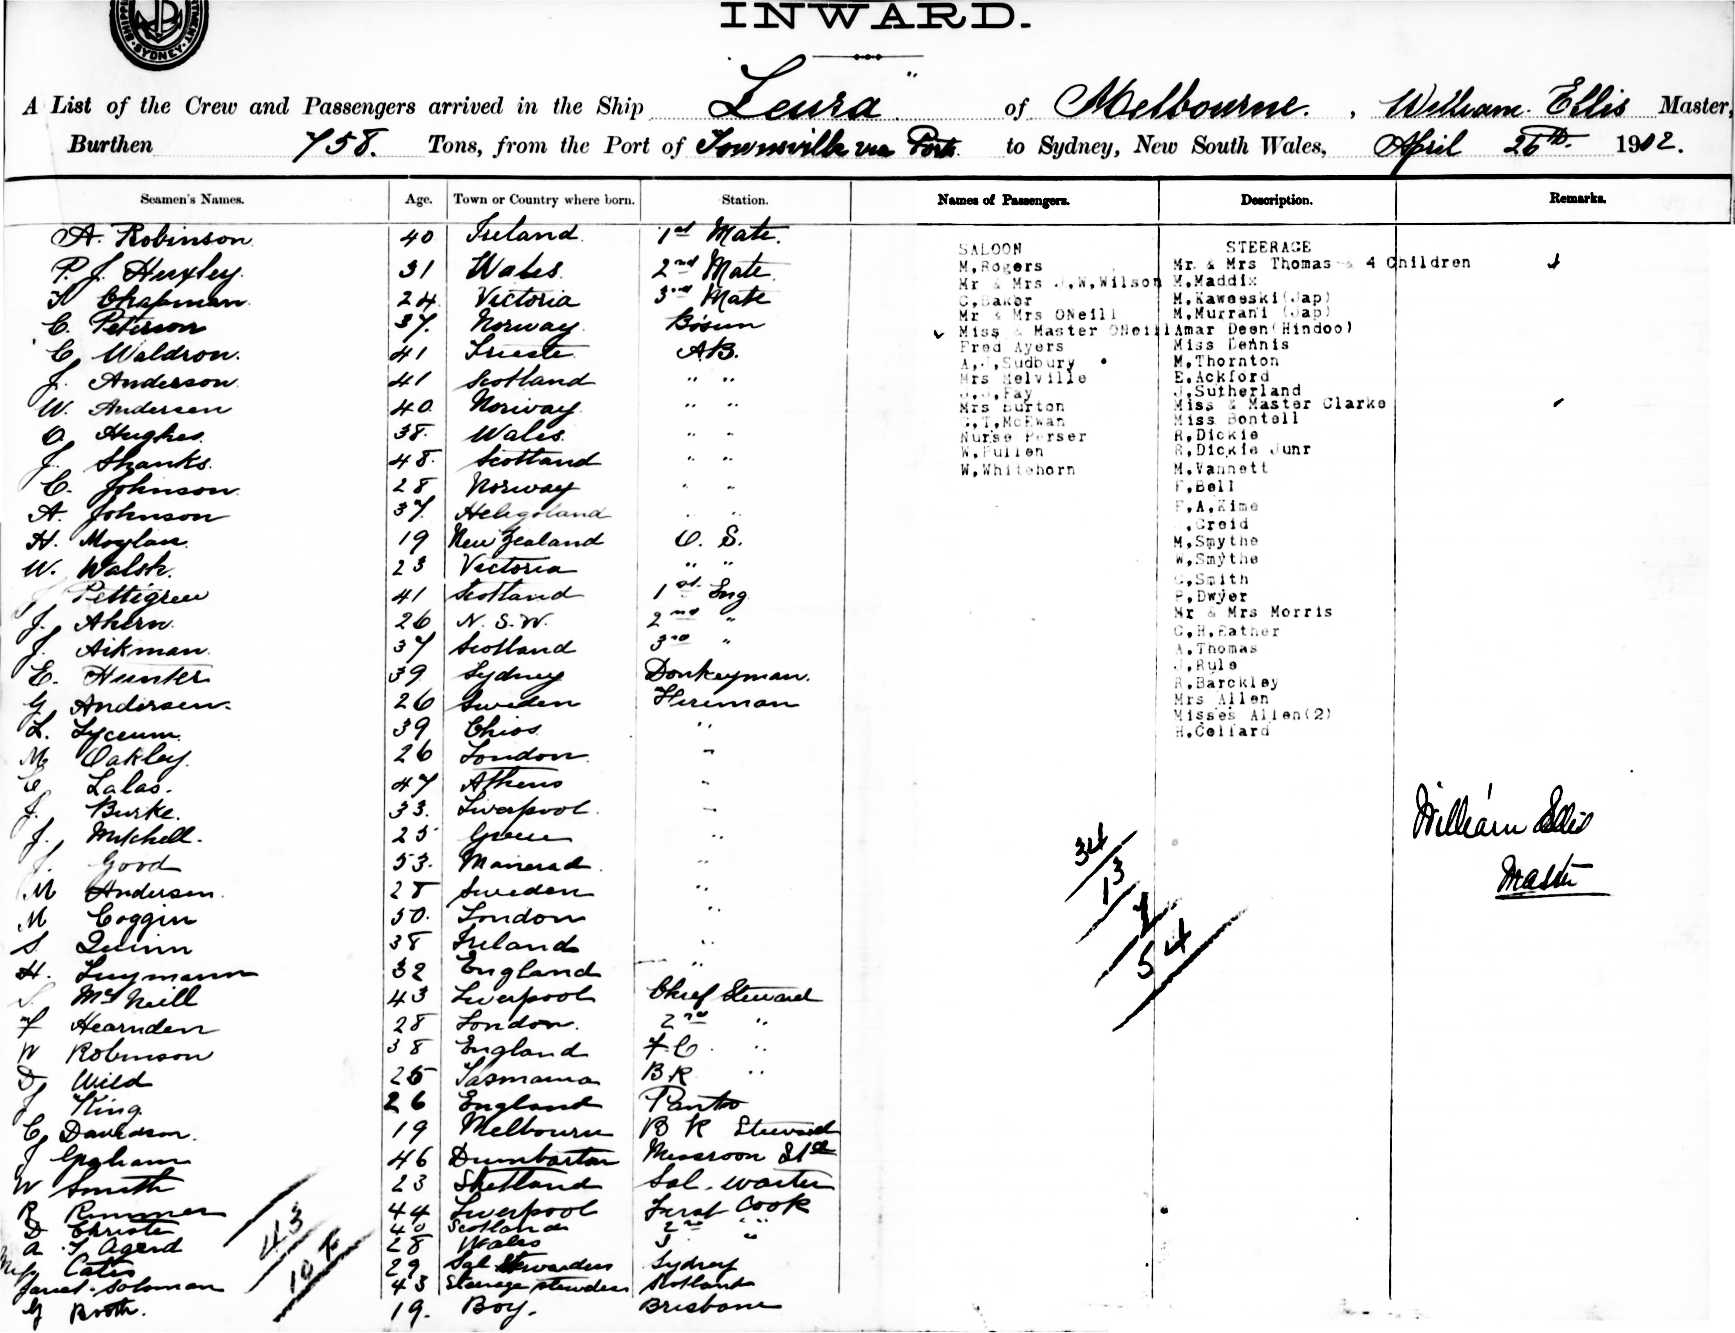 INWARD.
A List of the Crew and Passengers arrived in the Ship "Leura" of Melbourne, William Ellis Master,
Burthen 758. Tons, from the Port of Townsville via Ports to Sydney, New South Wales, April 26th 1912.
Seamen's Names. Age. Town or Country where born. Station. Names of Passengers. Description. Remarks.
A. Robinson 40 Ireland 1st Mate.
P. J. Huxley. 31 Wales 2nd Mate
Chapman 24 Victoria 3rd Mate
C. Peterson 37. Norway Bosun
C. Waldron. 41 Trieste A.B.
J. Anderson 41 Scotland " "
W. Andersen 40 Norway " "
O. Hughes 38. Wales " "
J. Shanks. 48. Scotland " "
C. Johnson 28 Norway " "
A. Johnson 37. Heligoland " "
H. Moylan 19 New Zealand O. S.
W. Walsh. 23 Victoria " "
Pettigrew 41 Scotland 1st Eng
J. Ahern. 26 N.S.W. 2nd "
J. Aikman. 37 Scotland 3rd "
E. Hunter 39 Sydney Donkeyman.
G. Andersen. 26 Sweden Fireman
L. Lyceum. 39 Chios "
M. Oakley. 26 London "
C Lalas. 47 Athens "
J. Burke. 33. Liverpool "
J. Mitchell. 25 Greece "
Good 53. "
M Andersen. 28 Sweden "
M Coggin 50. London "
S Quinn 38 Ireland "
H. 32 England "
McNeill 43 Liverpool Chief Steward
Hearnden 28 London. 2nd "
W Robinson 38 England F.C. "
D. Wild 25 Tasmania B R "
J King 26 England Pantry
C. Davidson. 19 Melbourne B R Steward
J Graham 46 Dumbarton Messroom Std
W Smith 23 Shetland Sal. waiter
R Rimmer 44 Liverpool First Cook
D Christie 40 Scotland 2nd "
28 Wales 3 "
Mrs Cates 29 Sal Stewardess Sydney
Janet Soloman 43 Steerage stewdess Scotland
G Booth. 19. Boy. Brisbane
43
10 F
SALOON
M.Rogers
Mr & Mrs J.W.Wilson
C.Baker
Mr & Mrs ONeill
Miss & Master ONeill
Fred Ayers
A.J.Sudbury
Mrs Melville
Fay
Mrs Burton
T.McEwan
Nurse Perser
W.Pullen
W.Whitehorn
STEERAGE
Mr & Mrs Thomas & 4 Children
M.Maddix
M.Kaweeski(Jap)
M.Murrani (Jap)
Amar Deen(Hindoo)
Miss Dennis
M.Thornton
E.Ackford
J.Sutherland
Miss & Master Clarke
Miss Bontell
R.Dickie
R.Dickie Junr
M.Vannett
F.Bell
F.A.Kime
Creid
M.Smythe
W.Smythe
C.Smith
P.Dwyer
Mr & Mrs Morris
C.H.Rather
A.Thomas
J.Rule
R.Barckley
Mrs Allen
Misses Allen(2)
H.Cellard
34
13
7
54
William Ellis
Master